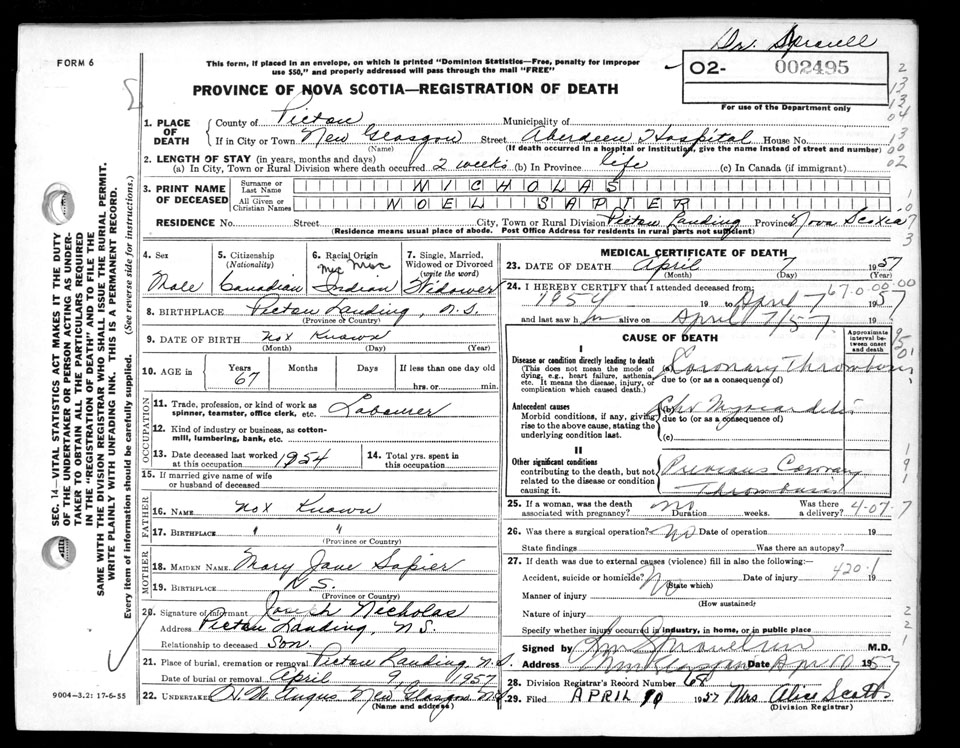 Dr. Sproull
FORM 6
This form, if placed in an envelope, on which is printed "Dominion Statistics—Free, penalty for improper use $50," and properly addressed will pass through the mail "FREE"
O2- 002495
For use of the Department only
PROVINCE OF NOVA SCOTIA—REGISTRATION OF DEATH
1. PLACE OF DEATH
County of Pictou Municipality of
If in City or Town New Glasgow Street Aberdeen Hospital House No.
(Name) (If death occurred in a hospital or institution, give the name instead of street and number)
2. LENGTH OF STAY (in years, months and days)
(a) In City, Town or Rural Division where death occurred 2 weeks (b) In Province life (c) In Canada (if immigrant)
3. PRINT NAME OF DECEASED
Surname or Last Name NICHOLAS
All Given or Christian Names NOEL SAPIER
RESIDENCE No. Street City, Town or Rural Division Pictou Landing Province Nova Scotia
(Residence means usual place of abode. Post Office Address for residents in rural parts not sufficient)
4. Sex Male
5. Citizenship (Nationality) Canadian
6. Racial Origin Mic Mac Indian
7. Single, Married, Widowed or Divorced (write the word) Widower
8. BIRTHPLACE Pictou Landing, N.S.
(Province or Country)
9. DATE OF BIRTH Not Known
(Month) (Day) (Year)
10. AGE in Years 67 Months Days If less than one day old hrs. or min.
OCCUPATION
11. Trade, profession, or kind of work as spinner, teamster, office clerk, etc. Labourer
12. Kind of industry or business, as cotton-mill, lumbering, bank, etc.
13. Date deceased last worked at this occupation 1954
14. Total yrs. spent in this occupation
15. If married give name of wife or husband of deceased
FATHER
16. NAME Not Known
17. BIRTHPLACE " "
(Province or Country)
MOTHER
18. MAIDEN NAME Mary Jane Sapier
19. BIRTHPLACE N.S.
(Province or Country)
20. Signature of informant Joseph Nicholas
Address Pictou Landing, N.S.
Relationship to deceased Son.
21. Place of burial, cremation or removal Pictou Landing, N.S.
Date of burial or removal April 9, 1957
22. UNDERTAKER D. W. Angus New Glasgow N.S.
(Name and address)
MEDICAL CERTIFICATE OF DEATH
23. DATE OF DEATH April 7 1957
(Month) (Day) (Year)
24. I HEREBY CERTIFY that I attended deceased from: 67.0.00.00
1954 19 to April 7 1957
and last saw him alive on April 7/57
CAUSE OF DEATH
Approximate interval between onset and death
I
Disease or condition directly leading to death (This does not mean the mode of dying, e.g., heart failure, asthenia, etc. It means the disease, injury, or complication which caused death.)
(a) Coronary Thrombosis
due to (or as a consequence of)
Antecedent causes
Morbid conditions, if any, giving rise to the above cause, stating the underlying condition last.
(b) Chr Myocarditis
due to (or as a consequence of)
(c)
II
Other significant conditions contributing to the death, but not related to the disease or condition causing it.
Previous Coronary Thrombosis
25. If a woman, was the death associated with pregnancy? no Duration weeks. Was there a delivery? 4-07-7
26. Was there a surgical operation? no Date of operation 19
State findings Was there an autopsy?
27. If death was due to external causes (violence) fill in also the following:
Accident, suicide or homicide? No (State which) Date of injury 420.1 19
Manner of injury
(How sustained)
Nature of injury
Specify whether injury occurred in industry, in home, or in public place
Signed by M.D.
Address New Glasgow Date Apr 10 1957
28. Division Registrar's Record Number 68
29. Filed APRIL 10 1957 Mrs Alice Scott
(Division Registrar)
SEC. 14—VITAL STATISTICS ACT MAKES IT THE DUTY OF THE UNDERTAKER OR PERSON ACTING AS UNDERTAKER TO OBTAIN ALL THE PARTICULARS REQUIRED IN THE "REGISTRATION OF DEATH" AND TO FILE THE SAME WITH THE DIVISION REGISTRAR WHO SHALL ISSUE THE BURIAL PERMIT.
WRITE PLAINLY WITH UNFADING INK. THIS IS A PERMANENT RECORD.
Every item of information should be carefully supplied. (See reverse side for instructions.)
9004—3.2: 17-6-55